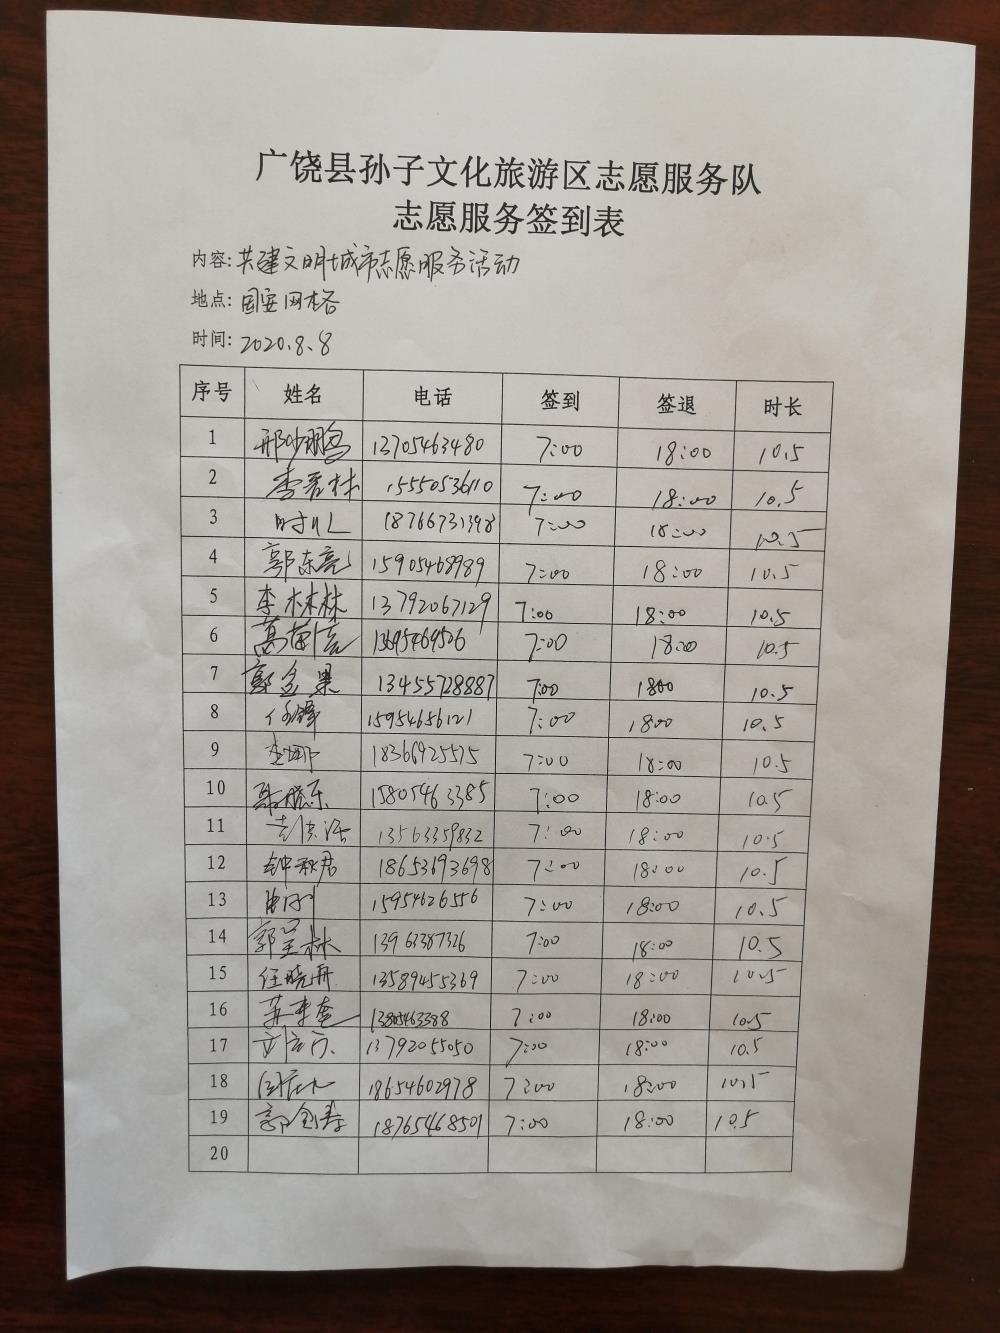 广饶县孙子文化旅游区志愿服务队
志愿服务签到表
内容:共建文明城市志愿服务活动
地点:国安网格
时间:2020.8.8
序号 姓名 电话 签到 签退 时长
1 13705463480 7:00 18:00 10.5
2 李春林 15550536110 7:00 18:00 10.5
3 18766731398 7:00 18:00 10.5
4 郭东亮 15905468989 7:00 18:00 10.5
5 李林林 13792067129 7:00 18:00 10.5
6 13695469526 7:00 18:00 10.5
7 郭金果 13455728887 7:00 1800 10.5
8 15954656121 7:00 1800 10.5
9 李娜 18366925575 7:00 18:00 10.5
10 15805463385 7:00 18:00 10.5
11 13563359832 7:00 18:00 10.5
12 钟秋君 18653693698 7:00 18:00 10.5
13 15954626556 7:00 18:00 10.5
14 郭呈林 13963387326 7:00 18:00 10.5
15 任晓丹 13589455369 7:00 18:00 10.5
16 苏奎 13805463388 7:00 18:00 10.5
17 13792055050 7:00 18:00 10.5
18 18654602978 7:00 18:00 10.5
19 郭金寿 18765468501 7:00 18:00 10.5
20